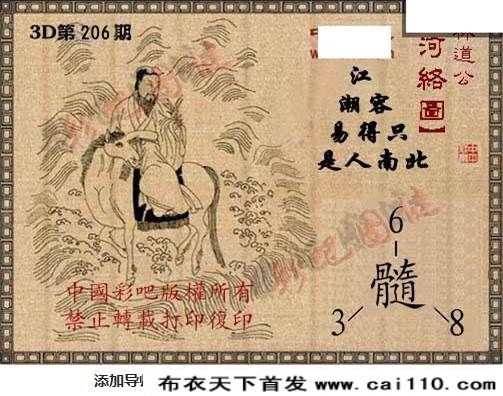 3D第206期
林道公
河络圖】
江
湖容
易得只
是人南北
6
髓
3
8
彩吧图谜
彩吧图谜
中國彩吧版權所有
禁止轉載打印復印
添加导
布衣天下首发 www.cai110.com